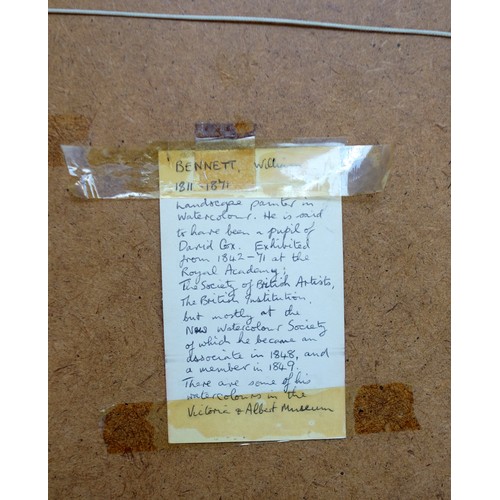 BENNETT, William
1811-1871
Landscape painter in
Watercolour. He is said
to have been a pupil of
David Cox. Exhibited
from 1842-71 at the
Royal Academy;
The Society of British Artists,
The British Institution,
but mostly at the
New Watercolour Society
of which he became an
associate in 1848, and
a member in 1849.
There are some of his
watercolours in the
Victoria & Albert Museum